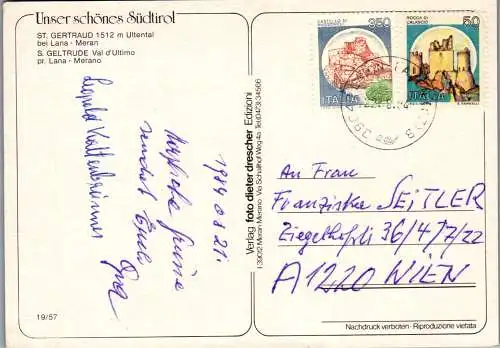 Unser schönes Südtirol
ST. GERTRAUD 1512 m Ultental
bei Lana - Meran
S. GELTRUDE Val d'Ultimo
pr. Lana - Merano
1984 08 21.
Leopold
19/57
Verlag foto dieter drescher Edizioni
I 39012 Meran Merano · Via Schallhof Weg 4a · Tel. (0473) 34566
350
ITALIA
ROCCA DI
URBISAGLIA
50
ITALIA
An Frau
Franziska SEITLER
Ziegelhofstr 36/4/7/22
A 1220 WIEN
Nachdruck verboten · Riproduzione vietata